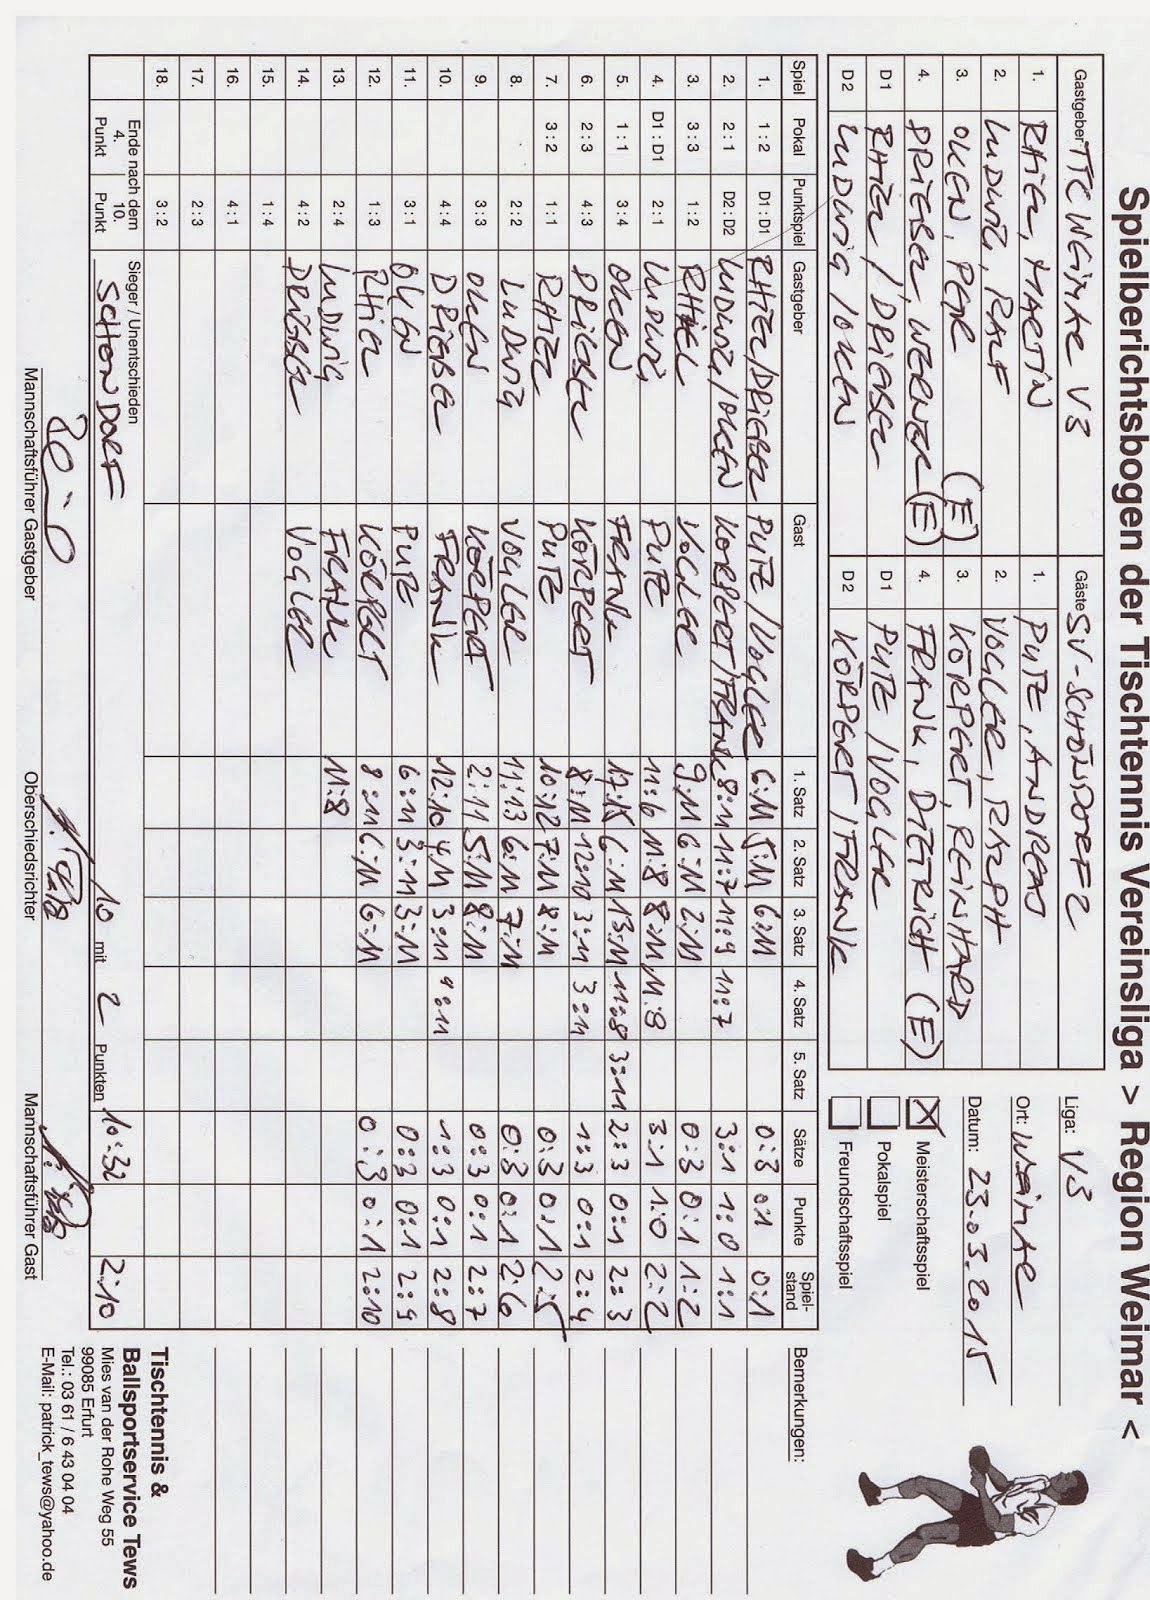 Spielberichtsbogen der Tischtennis Vereinsliga > Region Weimar <
Gastgeber TTC WEIMAR V3
1. RHIEL, MARTIN
2. LUDWIG, RALF
3. OKEN, PEER (E)
4. DRIEßEL, WERNER (E)
D1 RHIEL / DRIEßEL
D2 LUDWIG / OKEN
Gäste SV-SCHÖNDORF 2
1. PUTE, ANDREAS
2. VOGLER, RALPH
3. KÖRPERT, REINHARD
4. FRANK, DIETRICH (E)
D1 PUTE / VOGLER
D2 KÖRPERT / FRANK
Liga: V3
Ort: WEIMAR
Datum: 23.03.2015
Meisterschaftsspiel
Pokalspiel
Freundschaftsspiel
Spiel Pokal Punktspiel Gastgeber Gast 1. Satz 2. Satz 3. Satz 4. Satz 5. Satz Sätze Punkte Spielstand Bemerkungen:
1. 1:2 D1:D1 RHIEL/DRIEßEL PUTE/VOGLER 6:11 5:11 6:11 0:3 0:1 0:1
2. 2:1 D2:D2 LUDWIG/OKEN KÖRPERT/FRANK 8:11 11:7 11:9 11:7 3:1 1:0 1:1
3. 3:3 1:2 RHIEL VOGLER 9:11 6:11 2:11 0:3 0:1 1:2
4. D1:D1 2:1 LUDWIG PUTE 11:6 11:8 8:11 11:8 3:1 1:0 2:2
5. 1:1 3:4 OKEN FRANK 17:15 6:11 13:11 11:8 3:11 2:3 0:1 2:3
6. 2:3 4:3 DRIEßEL KÖRPERT 8:11 12:10 3:11 3:11 1:3 0:1 2:4
7. 3:2 1:1 RHIEL PUTE 10:12 7:11 8:11 0:3 0:1 2:5
8. 2:2 LUDWIG VOGLER 11:13 6:11 7:11 0:3 0:1 2:6
9. 3:3 OKEN KÖRPERT 2:11 5:11 8:11 0:3 0:1 2:7
10. 4:4 DRIEßEL FRANK 12:10 4:11 3:11 9:11 1:3 0:1 2:8
11. 3:1 OKEN PUTE 6:11 3:11 3:11 0:3 0:1 2:9
12. 1:3 RHIEL KÖRPERT 8:11 6:11 6:11 0:3 0:1 2:10
13. 2:4 LUDWIG FRANK 11:8
14. 4:2 DRIEßEL VOGLER
15. 1:4
16. 4:1
17. 2:3
18. 3:2
Ende nach dem
4. Punkt 10. Punkt
Sieger / Unentschieden
SCHÖNDORF 10 mit 2 Punkten 10:32 2:10
Mannschaftsführer Gastgeber Oberschiedsrichter Mannschaftsführer Gast
Tischtennis &
Ballsportservice Tews
Mies van der Rohe Weg 55
99085 Erfurt
Tel.: 03 61 / 6 43 04 04
E-Mail: patrick_tews@yahoo.de